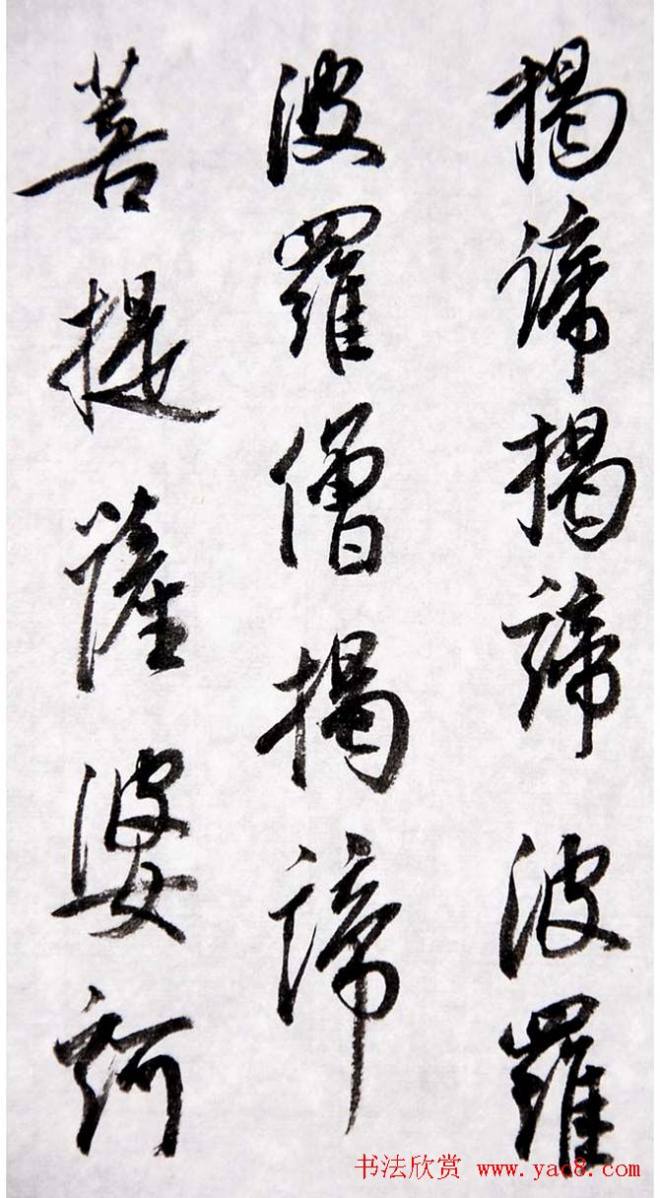 揭諦揭諦波羅
波羅僧揭諦
菩提薩婆訶
书法欣赏 www.yac8.com